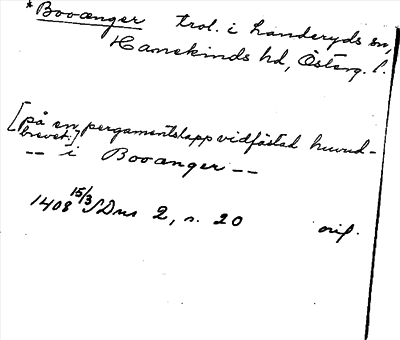 *Booanger trol. i Landeryds sn,
Hanekinds hd, Österg. l.
[på en pergamentslapp vidfästad huvud-
brevet:]
-- i Booanger --
1408 15/3 SDns 2, s. 20 orig.